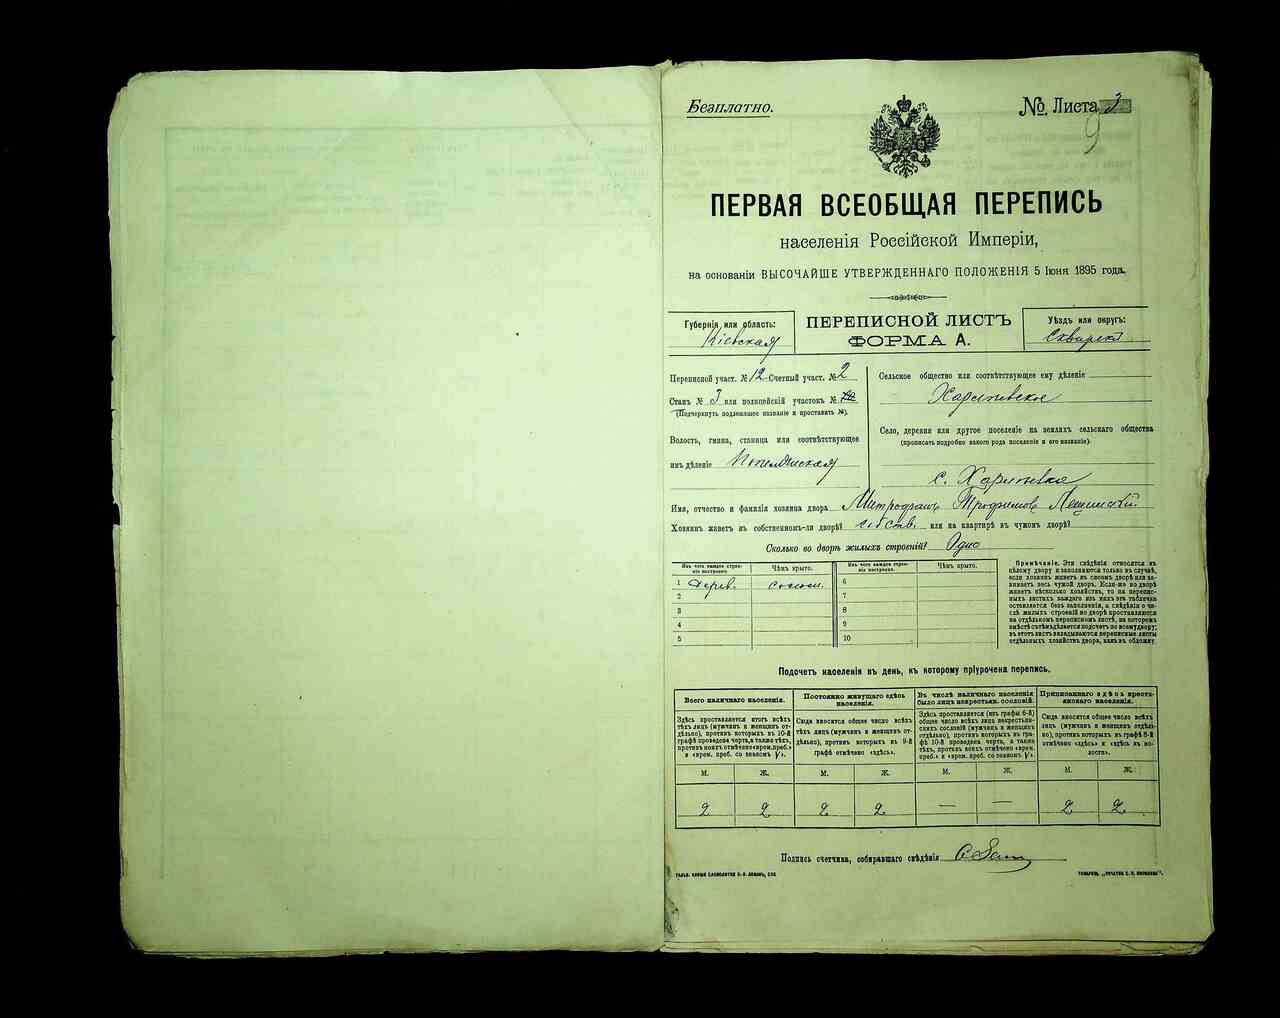 Безплатно.
№. Листа 3
9
ПЕРВАЯ ВСЕОБЩАЯ ПЕРЕПИСЬ
населенія Россійской Имперіи,
на основаніи ВЫСОЧАЙШЕ УТВЕРЖДЕННАГО ПОЛОЖЕНІЯ 5 Іюня 1895 года.
Губернія или область:
Кіевская
ПЕРЕПИСНОЙ ЛИСТЪ
ФОРМА А.
Уѣздъ или округъ:
Сквирск
Переписной участ. № 12 Счетный участ. № 2
Станъ № 3 или полицейскій участокъ №
(Подчеркнуть подлежащее названіе и проставить №).
Волость, гмина, станица или соотвѣтствующее
имъ дѣленіе
Сельское общество или соотвѣтствующее ему дѣленіе
Село, деревня или другое поселеніе на земляхъ сельскаго общества
(прописать подробно какого рода поселеніе и его названіе).
с.
Имя, отчество и фамилія хозяина двора Митрофанъ Трофимов Лещинскій
Хозяинъ живетъ въ собственномъ-ли дворѣ? собств. или на квартирѣ въ чужомъ дворѣ?
Сколько во дворѣ жилыхъ строеній? Одно
Изъ чего каждое строеніе построено. Чѣмъ крыто. Изъ чего каждое строеніе построено. Чѣмъ крыто.
1 Дерев. солом. 6
2 7
3 8
4 9
5 10
Примѣчаніе. Эти свѣдѣнія относятся къ
цѣлому двору и заполняются только въ случаѣ,
если хозяинъ живетъ въ своемъ дворѣ или занимаетъ
весь чужой дворъ. Если-же во дворѣ
живетъ нѣсколько хозяйствъ, то на переписныхъ
листахъ каждаго изъ нихъ эта табличка
оставляется безъ заполненія, а свѣдѣнія о числѣ
жилыхъ строеній во дворѣ проставляются
на отдѣльномъ переписномъ листѣ, на которомъ
вмѣстѣ съ тѣмъ дѣлается подсчетъ по всему двору;
въ этотъ листъ вкладываются переписные листы
отдѣльныхъ хозяйствъ двора, какъ въ обложку.
Подсчетъ населенія въ день, къ которому пріурочена перепись.
Всего наличнаго населенія.
Здѣсь проставляется итогъ всѣхъ
тѣхъ лицъ (мужчинъ и женщинъ отдѣльно),
противъ которыхъ въ 10-й
графѣ проведена черта, а также тѣхъ,
противъ коихъ отмѣчено «врем. преб.»
и «врем. преб. со знакомъ V».
Постоянно живущаго здѣсь населенія.
Сюда вносится общее число всѣхъ
тѣхъ лицъ (мужчинъ и женщинъ отдѣльно),
противъ которыхъ въ 9-й
графѣ отмѣчено «здѣсь».
Въ числѣ наличнаго населенія
было лицъ некрестьян. сословій.
Здѣсь проставляется (изъ графы 6-й)
общее число всѣхъ лицъ некрестьянскихъ
сословій (мужчинъ и женщинъ
отдѣльно), противъ которыхъ въ
графѣ 10-й проведена черта, а также
тѣхъ, противъ коихъ отмѣчено «врем.
преб.» и «врем. преб. со знакомъ V».
Приписаннаго здѣсь крестьянскаго населенія.
Сюда вносится общее число всѣхъ
лицъ (мужчинъ и женщинъ отдѣльно),
противъ которыхъ въ графѣ 8-й
отмѣчено «здѣсь» и «здѣсь въ волости».
М. Ж. М. Ж. М. Ж. М. Ж.
2 2 2 2 — — 2 2
Подпись счетчика, собиравшаго свѣдѣнія